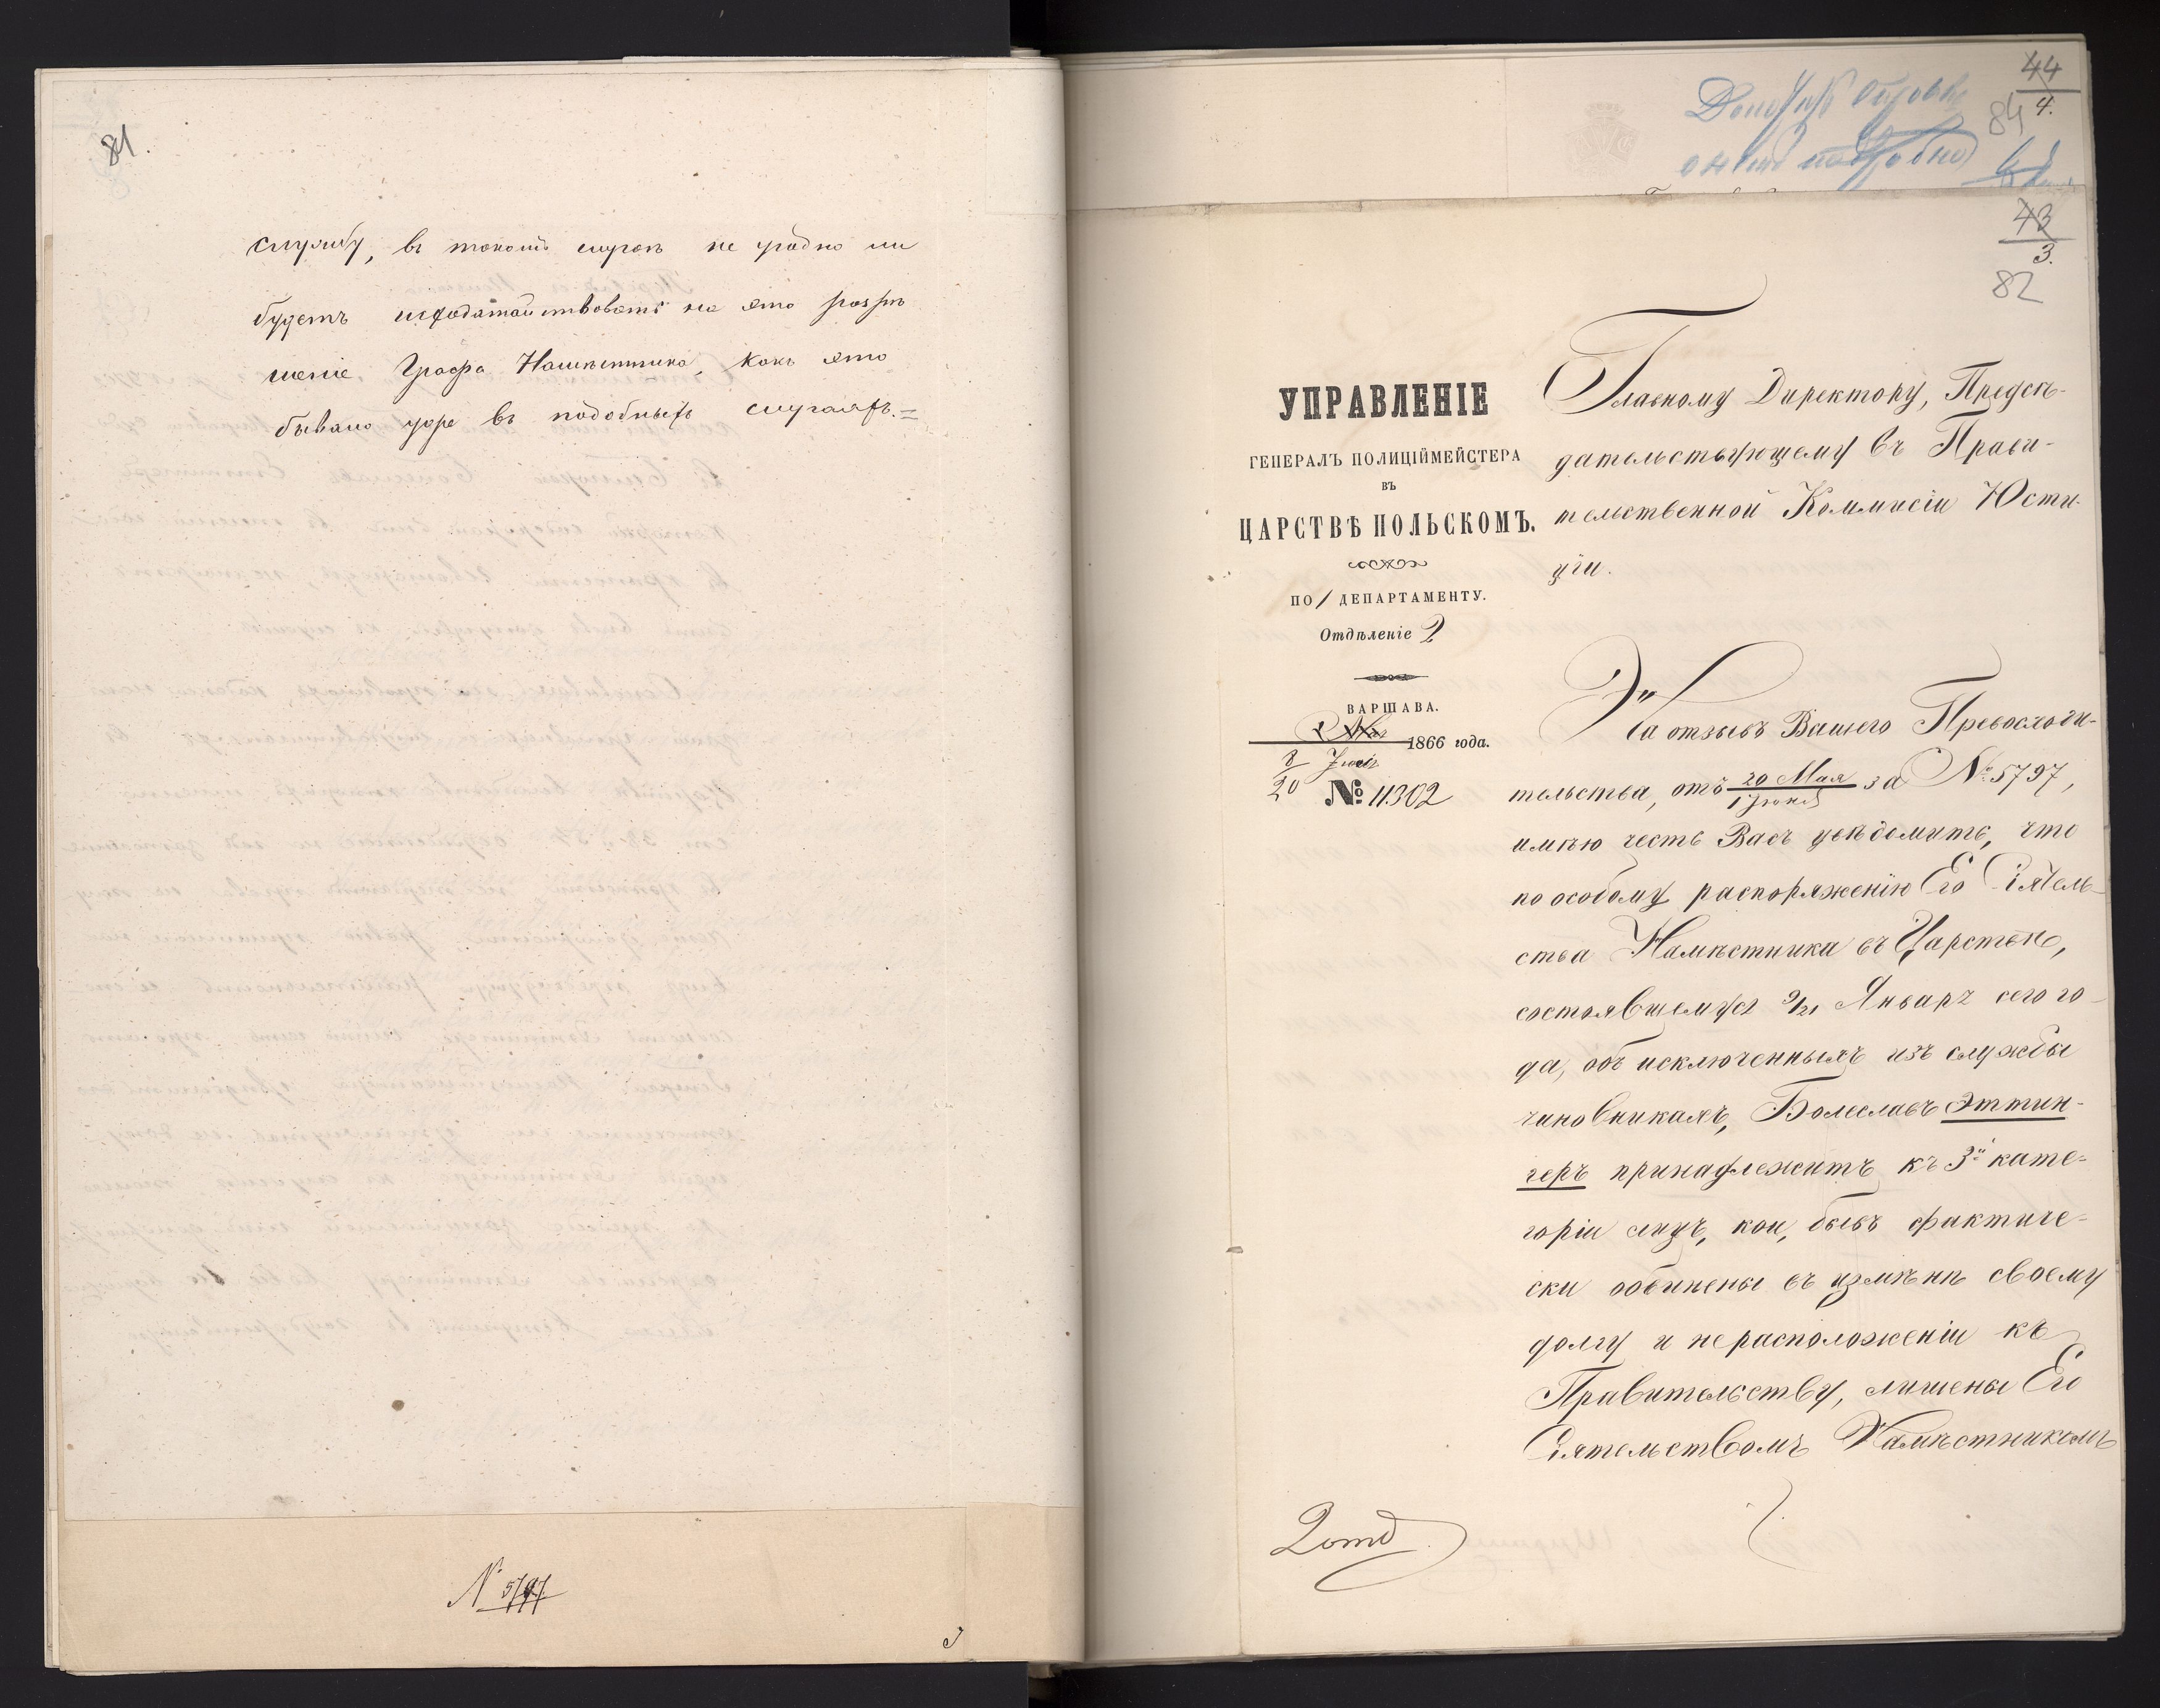 81.
службу, въ такомъ случаѣ не угодно ли
будетъ исходатайствовать на это разрѣ
шеніе Графа Намѣстника, какъ это
бывало уже въ подобныхъ случаяхъ.=
№ 5797
44
4.
84
43
3.
82
УПРАВЛЕНІЕ
ГЕНЕРАЛЪ ПОЛИЦІЙМЕЙСТЕРА
ВЪ
ЦАРСТВѢ ПОЛЬСКОМЪ.
ПО 1 ДЕПАРТАМЕНТУ.
Отдѣленіе 2
ВАРШАВА.
1866 года.
8 Іюня
20
№ 11302
Главному Директору, Предсѣ-
дательствующему въ Прави-
тельственной Коммисіи Юсти-
ціи.
На отзывъ Вашего Превосходи-
тельства, отъ 20 Мая / 1 Іюня за № 5797,
имѣю честь Васъ увѣдомить, что
по особому распоряженію Его Сіятель-
ства Намѣстника въ Царствѣ,
состоявшемуся 9/21 Января сего го-
да, объ исключенныхъ изъ службы
чиновникахъ, Болеславъ Эттин-
геръ принадлежитъ къ 3й кате-
горіи лицъ, кои, бывъ фактиче-
ски обвинены въ измѣнѣ своему
долгу и нерасположеніи къ
Правительству, лишены Его
Сіятельствомъ Намѣстникомъ
2 отд